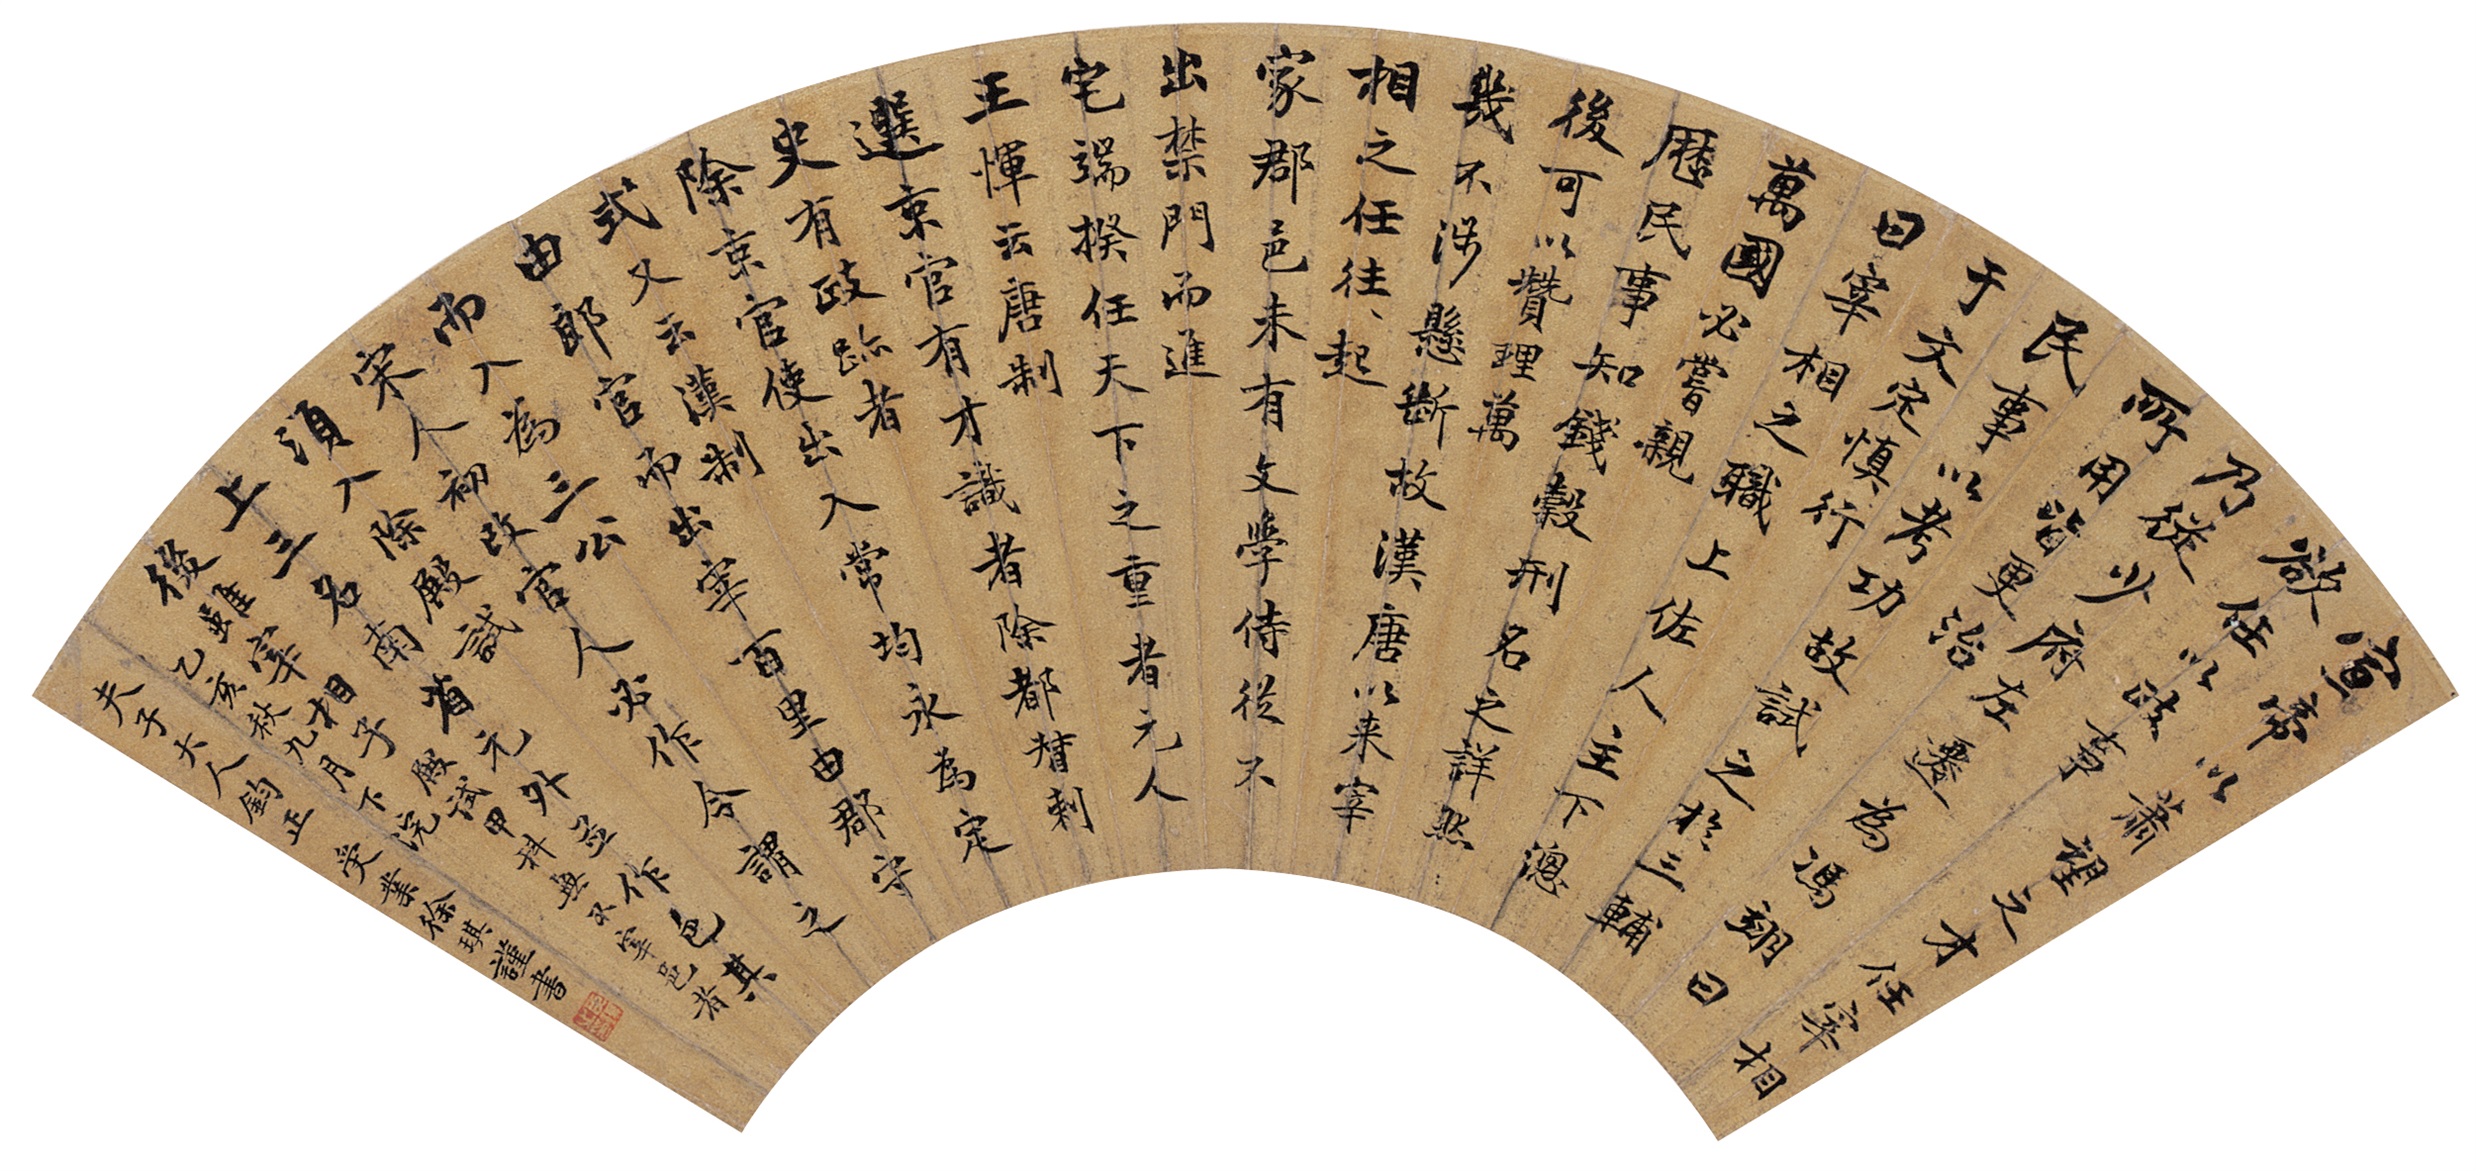 宣帝以蕭望之才任宰相
欲任以政事
乃從少府左遷為馮翊曰
所用皆更治
民事以考功故試之於三輔
于文定慎行
曰宰相之職上佐人主下總
萬國必嘗親
歷民事知錢穀刑名之詳然
後可以贊理萬
幾不涉懸斷故漢唐以来宰
相之任往〻起
家郡邑未有文學侍從不
出禁門而進
宅端揆任天下之重者元人
王惲云唐制
選京官有才識者除都督刺
史有政跡者
除京官使出入常均永為定
式又云漢制
由郎官而出宰百里由郡守
而入為三公
宋人初改官人必作令謂之
須入除殿試
上三名南省元外並作邑其
後雖宰相子殿試甲科無不宰邑者
乙亥秋九月下浣
夫子大人鈞正 受業徐琪謹書